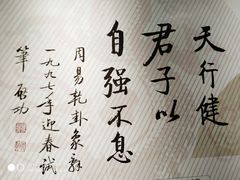 天行健
君子以
自强不息
周易乾卦象辞
一九九七年迎春试
笔 启功